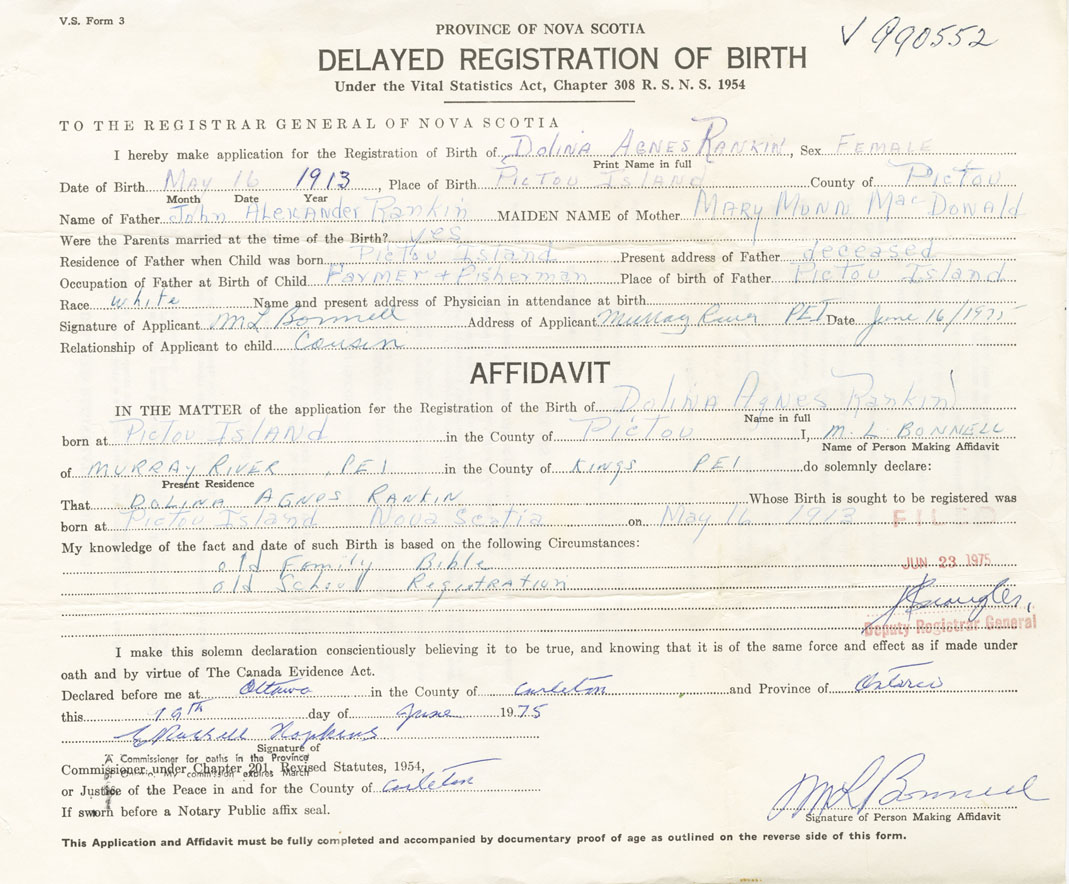 V.S. Form 3
PROVINCE OF NOVA SCOTIA
√ 990552
DELAYED REGISTRATION OF BIRTH
Under the Vital Statistics Act, Chapter 308 R. S. N. S. 1954
TO THE REGISTRAR GENERAL OF NOVA SCOTIA
I hereby make application for the Registration of Birth of Dolina Agnes Rankin, Sex Female
Print Name in full
Date of Birth May 16 1913, Place of Birth Pictou Island County of Pictou
Month Date Year
Name of Father John Alexander Rankin MAIDEN NAME of Mother Mary Munn MacDonald
Were the Parents married at the time of the Birth? yes
Residence of Father when Child was born Pictou Island Present address of Father deceased
Occupation of Father at Birth of Child Farmer + Fisherman Place of birth of Father Pictou Island
Race white Name and present address of Physician in attendance at birth
Signature of Applicant M L Bonnell Address of Applicant Murray River PEI Date June 16/1975
Relationship of Applicant to child Cousin
AFFIDAVIT
IN THE MATTER of the application for the Registration of the Birth of Dolina Agnes Rankin
Name in full
born at Pictou Island in the County of Pictou I, M. L BONNELL
Name of Person Making Affidavit
of MURRAY RIVER, PEI in the County of KINGS PEI do solemnly declare:
Present Residence
That DOLINA AGNES RANKIN Whose Birth is sought to be registered was
born at Pictou Island Nova Scotia on May 16 1913
FILED
My knowledge of the fact and date of such Birth is based on the following Circumstances:
old Family Bible
JUN 23 1975
old School Registration
Deputy Registrar General
I make this solemn declaration conscientiously believing it to be true, and knowing that it is of the same force and effect as if made under
oath and by virtue of The Canada Evidence Act.
Declared before me at Ottawa in the County of Carleton and Province of Ontario
this 19th day of June 1975
E Russell Hopkins
Signature of
A Commissioner for oaths in the Province
Commissioner under Chapter 201, Revised Statutes, 1954,
My commission expires March
or Justice of the Peace in and for the County of Carleton
If sworn before a Notary Public affix seal.
M L Bonnell
Signature of Person Making Affidavit
This Application and Affidavit must be fully completed and accompanied by documentary proof of age as outlined on the reverse side of this form.